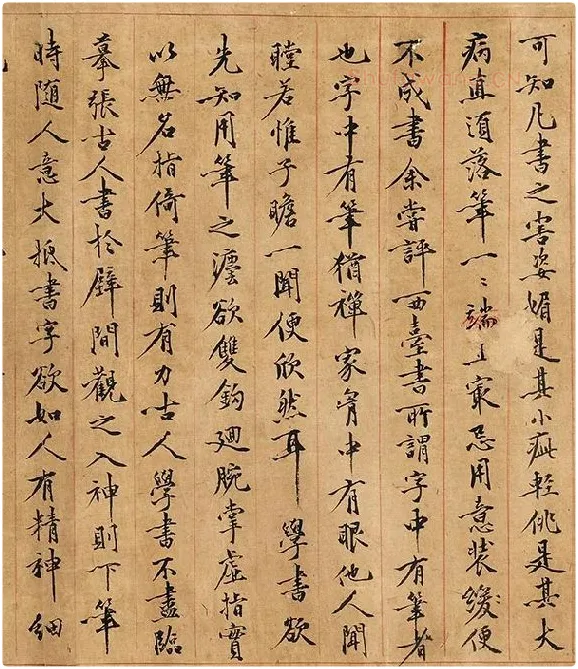 可知凡書之害姿媚是其小疵輕佻是其大
病直須落筆一〻端正最忌用意裝綴便
不成書余嘗評西臺書所謂字中有筆者
也字中有筆猶禪家中有眼他人聞
瞠若惟子瞻一聞便欣然耳 學書欲
先知用筆之灋欲雙鈎廻腕掌虛指實
以無名指倚筆則有力古人學書不盡臨
摹張古人書於壁間觀之入神則下筆
時隨人意大抵書字欲如人有精神細